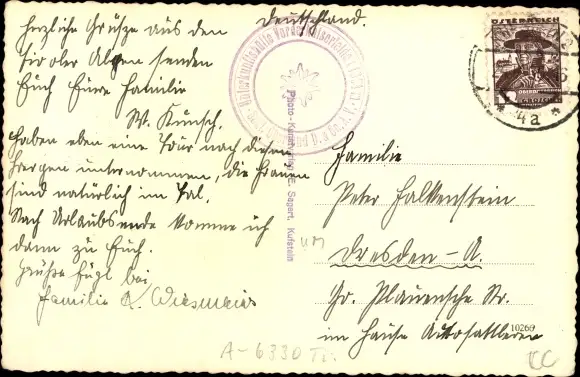 Deutschland.
herzliche Grüsse aus den
Tiroler Alpen senden
Euch Eure Familie
W. Kunsch.
haben eben eine Tour nach diesen
Bergen unternommen, die Frauen
sind natürlich im Tal.
Nach Urlaubsende komme ich
dann zu Euch.
Grüße fügt bei
Familie Wiesmeier
Unterkunftshütte Vorderkaiserfelden
Photo-Kunstverlag E. Sapert, Kufstein
ÖSTERREICH
4a
Familie
Peter Falkenstein
Dresden-A.
Gr. Plauensche Str.
im Hause Autosattlerei
10260
A-6330